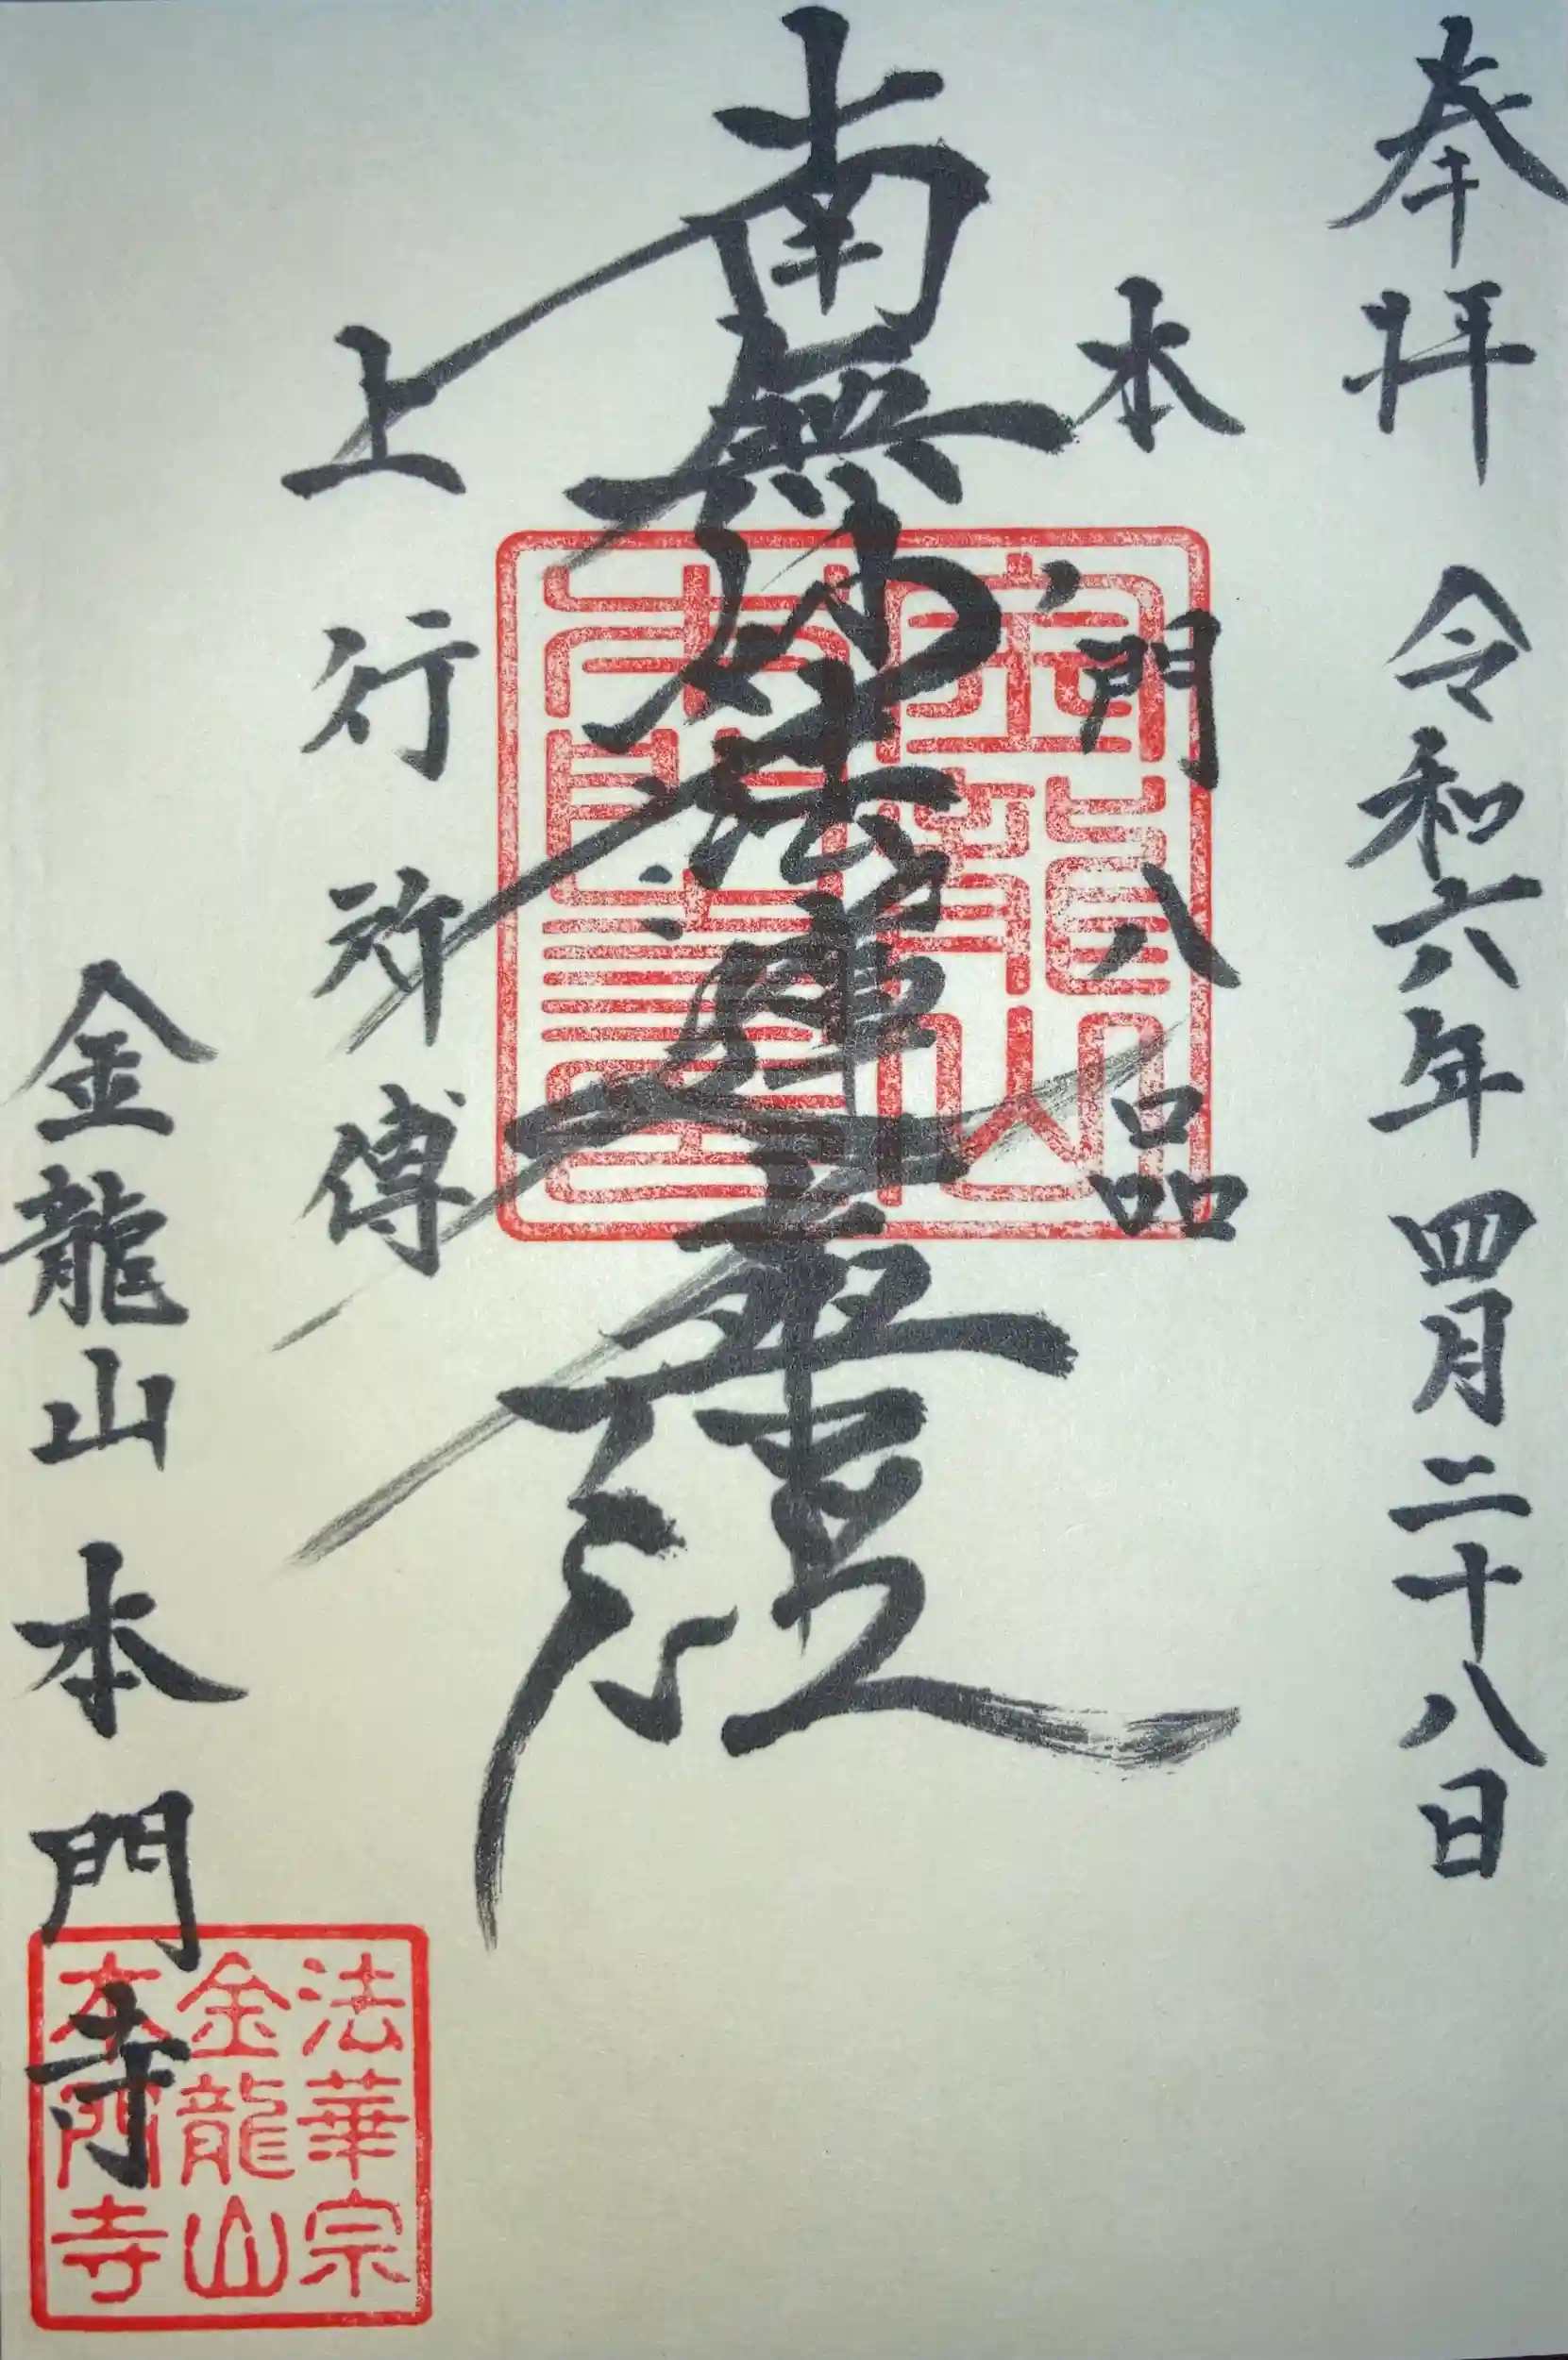 奉拝 令和六年四月二十八日
本門八品
南無妙法蓮華経
上行所傳
金龍山本門寺
金龍山
本門寺
法華宗
金龍山
本門寺